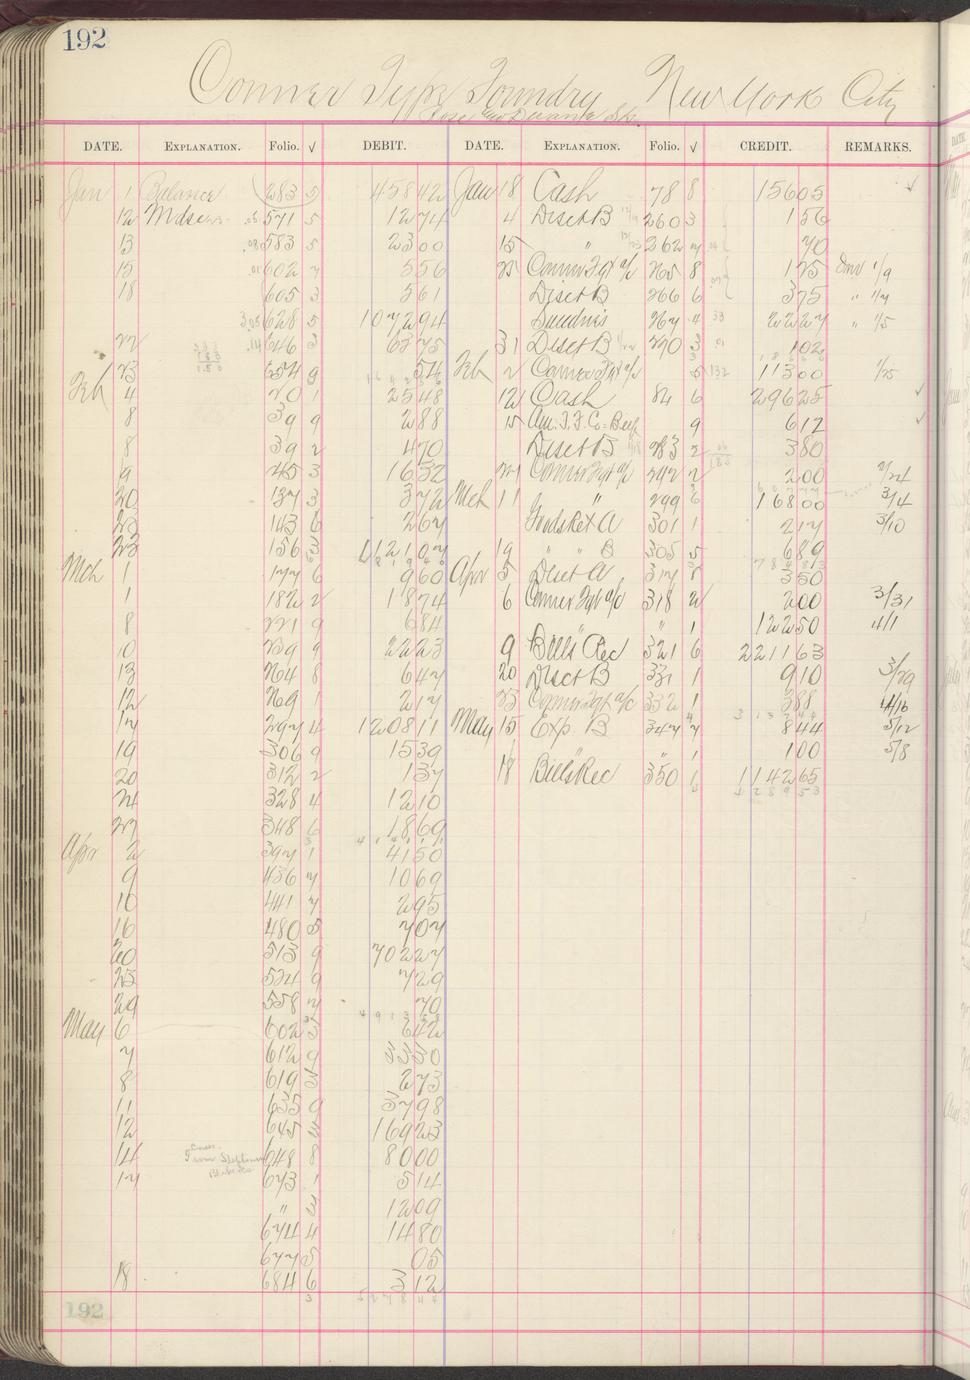 192
Conner Type Foundry New York City
Rose and Duane Sts.
DATE. EXPLANATION. Folio. √ DEBIT. DATE. EXPLANATION. Folio. √ CREDIT. REMARKS.
Jan 1 Balance 283 5 458 42 Jan 18 Cash 78 8 156 05
12 Mdse 571 5 12 74 4 Disct B 260 3 1 56
13 583 5 23 00 15 " 262 7 70
15 602 7 5 56 25 Conner Fgt a/c 265 8 1 25 1/9
18 605 3 5 61 Disct B 266 6 3 75 " 1/7
628 5 1072 94 Sundries 267 4 22 27 " 1/5
22 646 3 63 75 31 Disct B 270 3 1 02
23 654 9 54 Feb 2 Conner Fgt a/c 5 113 00 1/25
Feb 4 20 1 25 48 12 Cash 84 6 296 25
8 39 9 2 88 15 Am. T. F. Co. 9 6 12
8 39 2 4 70 Disct B 283 2 3 80
9 45 3 16 32 Conner Fgt a/c 292 2 2 00 2/24
20 137 3 3 72 Mch 11 " 299 168 00 3/4
23 143 6 2 67 Goods Ret A 301 1 2 17 3/10
156 3 19 " " B 305 5 6 89
Mch 1 177 6 9 60 Apr 5 Disct A 317 8 3 50
1 182 2 18 74 6 Conner Fgt a/c 318 2 2 00 3/31
8 221 9 6 84 " 1 122 50 4/1
10 239 9 22 23 9 Bills Rec 321 6 2211 63
13 264 8 6 47 20 Disct B 331 1 9 10 3/29
12 269 1 2 17 23 Conner Fgt a/c 332 1 3 88 4/16
17 297 4 1208 11 May 15 Exp. B 347 7 8 44 5/12
19 306 9 15 39 " 1 1 00 5/8
20 312 2 1 37 18 Bills Rec 350 1 1142 65
24 328 4 12 10
27 348 6 18 69
Apr 2 397 1 41 50
9 436 7 10 69
10 441 7 2 95
16 480 5 7 07
20 513 9 702 27
25 524 9 7 29
29 558 7 70
May 6 602 5 6 42
7 612 9 33 30
8 619 3 2 73
11 635 9 37 98
12 645 169 23
14 648 8 80 00
17 673 1 5 14
" 3 12 09
674 4 14 80
677 5 05
18 684 6 3 12
192